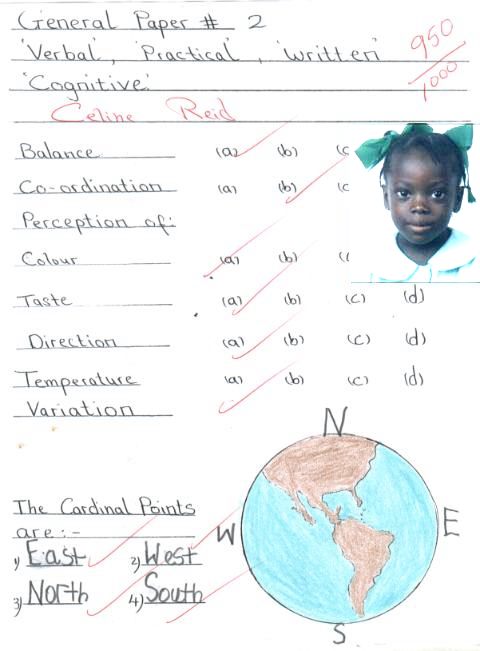 General Paper # 2
'Verbal', 'Practical', 'Written'
950
1000
'Cognitive'
Celine Reid
Balance (a) (b) (c
Co-ordination (a) (b) (c
Perception of:
Colour (a) (b) (
Taste (a) (b) (c) (d)
Direction (a) (b) (c) (d)
Temperature (a) (b) (c) (d)
Variation
N
The Cardinal Points
are:-
W
E
1) East 2) West
3) North 4) South
S